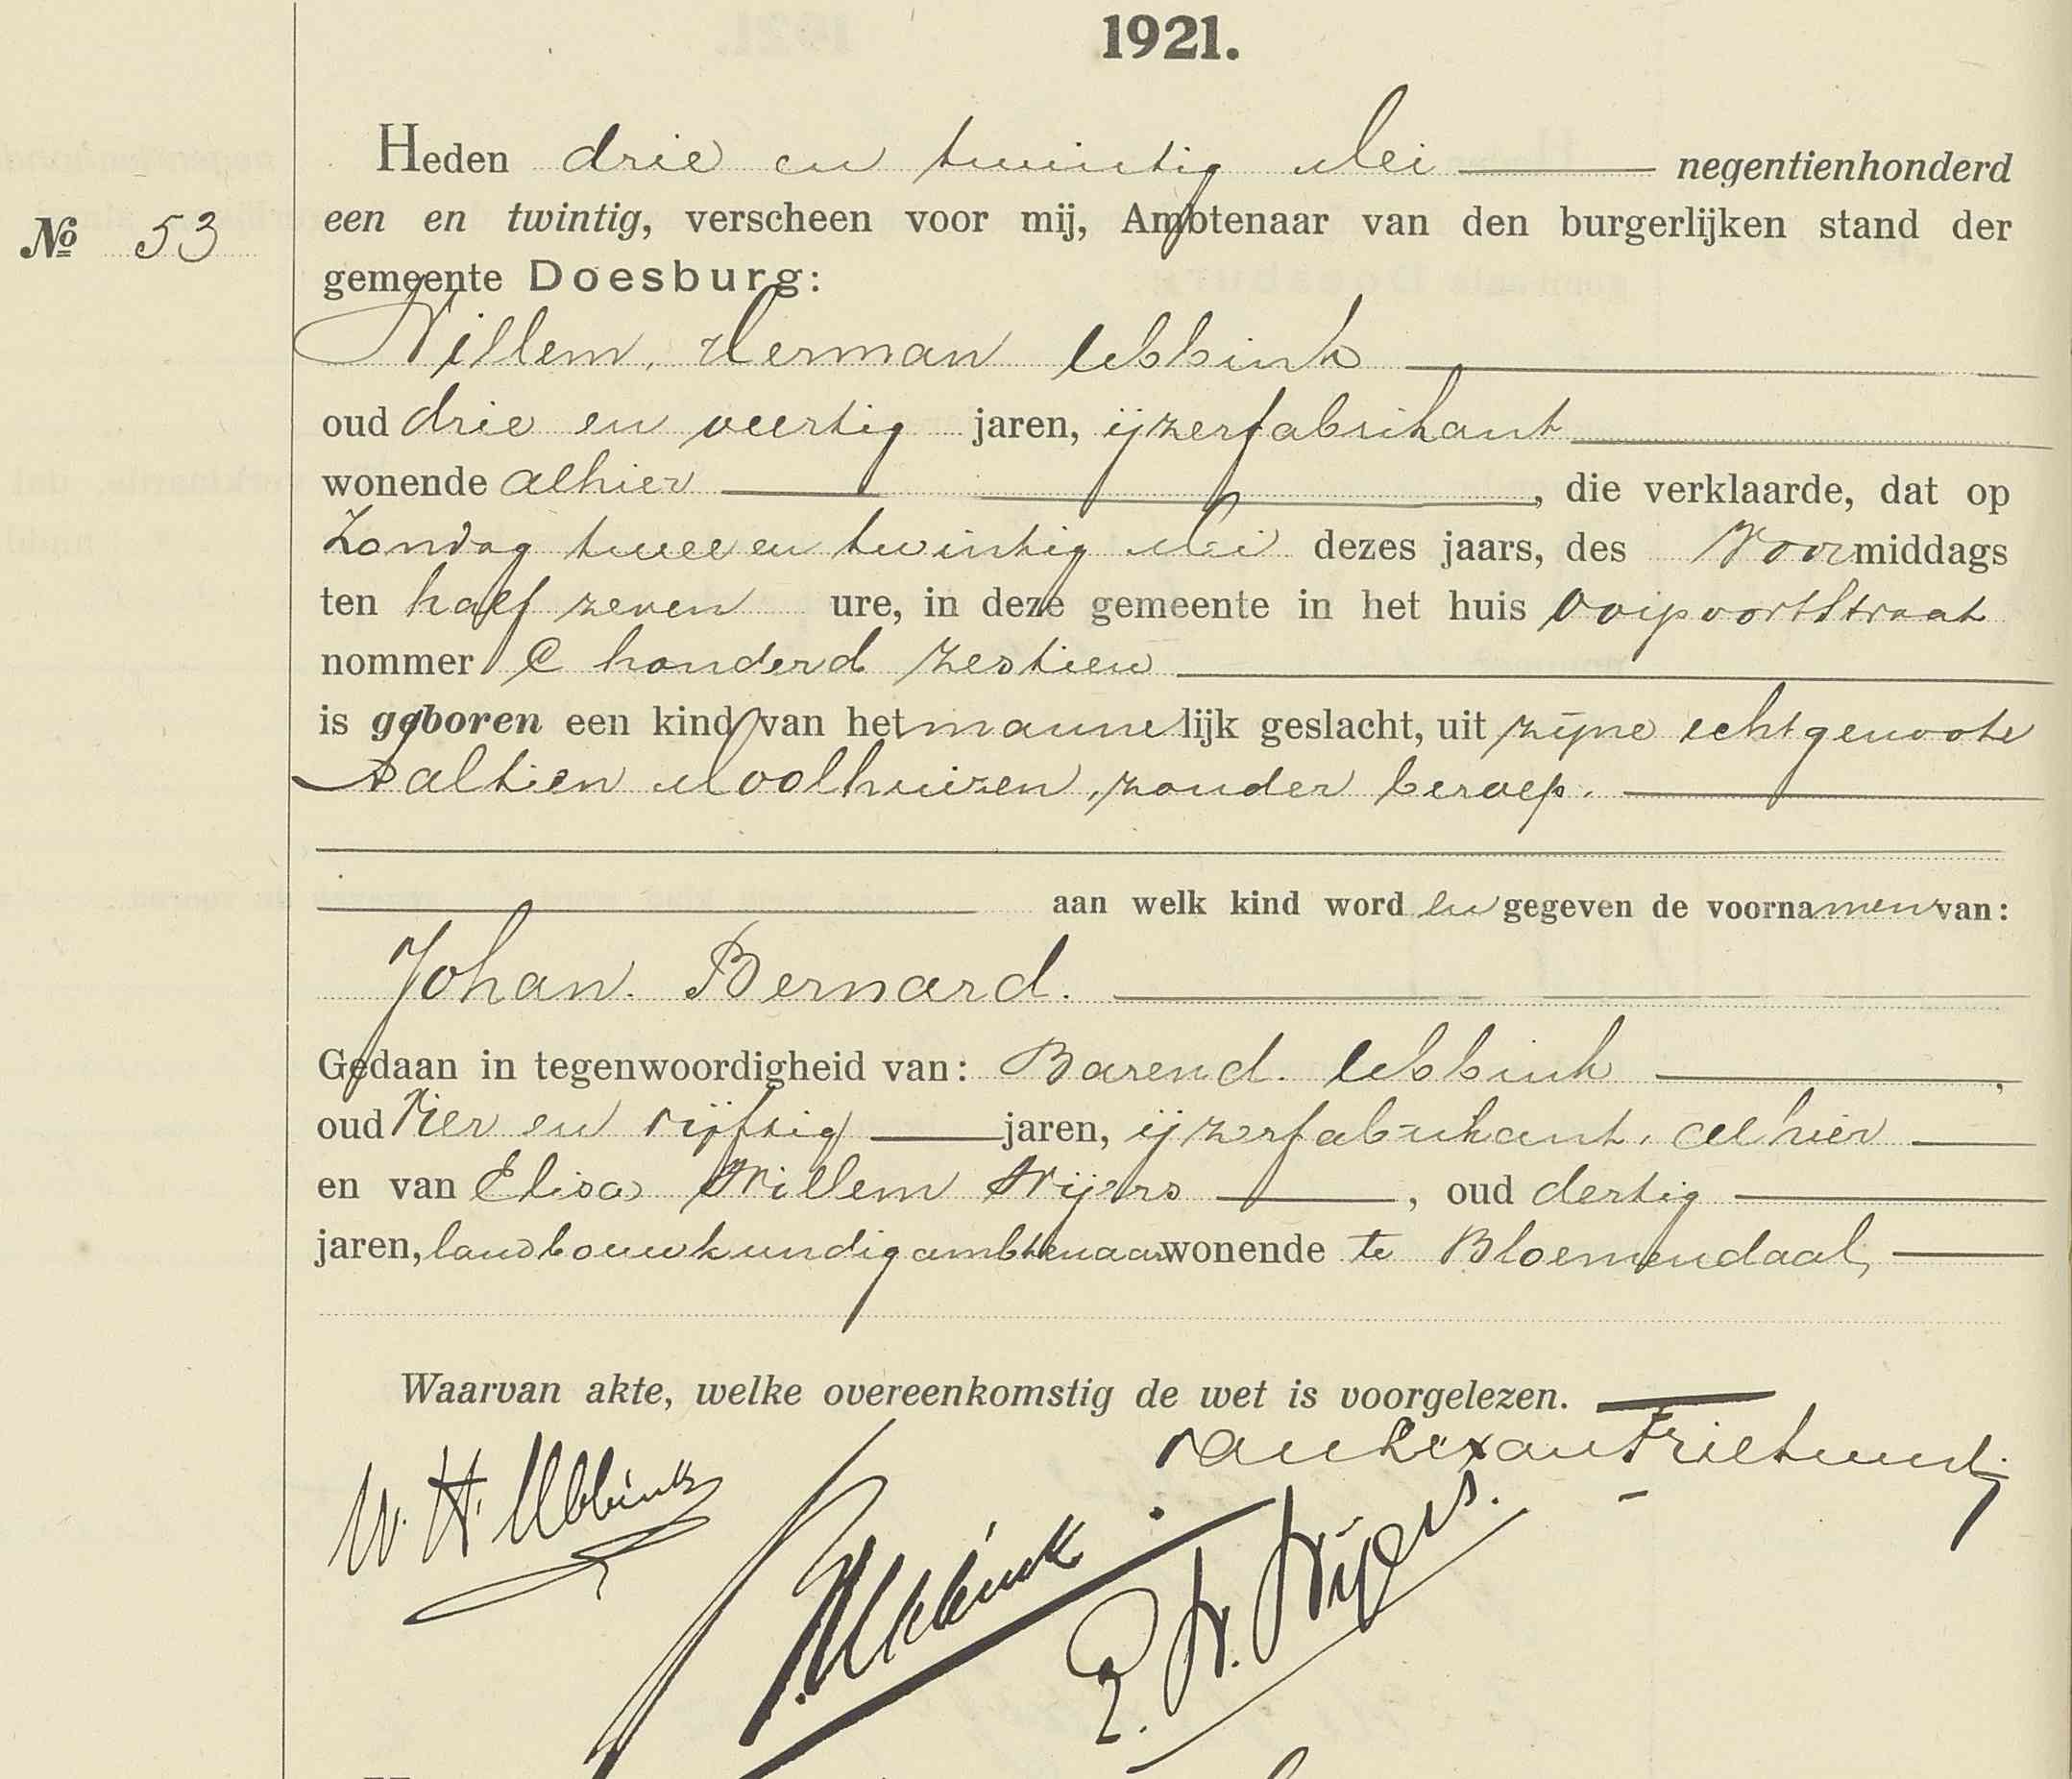 1921.
Heden drie en twintig Mei negentienhonderd
No 53
een en twintig, verscheen voor mij, Ambtenaar van den burgerlijken stand der
gemeente Doesburg:
Willem Herman Ubbink
oud drie en veertig jaren, ijzerfabrikant
wonende alhier , die verklaarde, dat op
Zondag twee en twintig Mei dezes jaars, des Voormiddags
ten half zeven ure, in deze gemeente in het huis Ooipoortstraat
nommer C honderd zestien
is geboren een kind van het mannelijk geslacht, uit zijne echtgenoote
Aaltien Moolhuizen, zonder beroep.
aan welk kind worden gegeven de voornamen van:
Johan Bernard.
Gedaan in tegenwoordigheid van: Barend Ubbink ,
oud Vier en vijftig jaren, ijzerfabrikant, alhier
en van Elisa Willem Wijers , oud dertig
jaren, landbouwkundig ambtenaar wonende te Bloemendaal,
Waarvan akte, welke overeenkomstig de wet is voorgelezen.
W. H. Ubbink
B. Ubbink
E. W. Wijers.